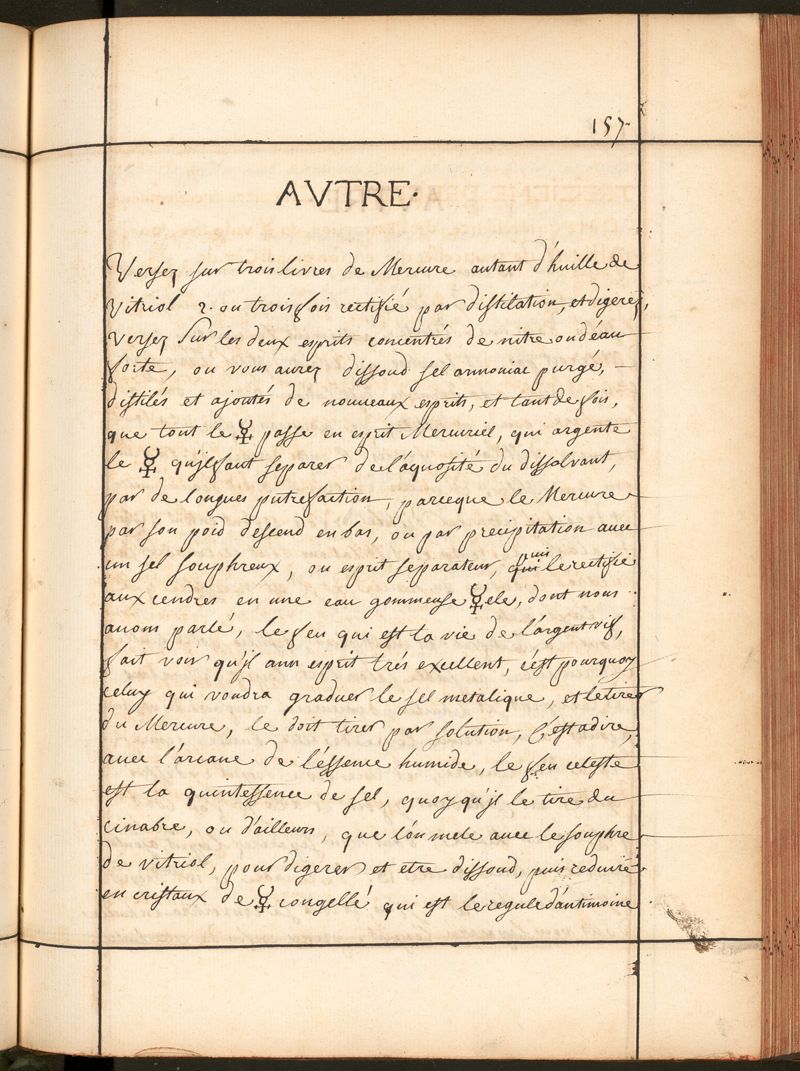 157.
AVTRE.
Versez sur trois livres de Mercure autant d'huille de
Vitriol 2. ou trois fois rectifié par distilation, et digerez,
versez sur les deux esprits concentrés de nitre ou d'eau
forte, ou vous aurez dissoud sel armoniac purgé, –
distilés et ajoutés de nouveaux esprits, et tant de fois,
que tout le ☿ passe en esprit Mercuriel, qui argente
le ☿ qu'jl faut separer de l'aquosité du dissolvant,
par de longues putrefaction, parceque le Mercure
par son poid descend en bas, ou par precipitation avec
un sel souphreux, ou esprit separateur, puis le rectifie
aux cendres en une eau gommeuse ☿ele, dont nous
avons parlé, le feu qui est la vie de l'argent vif,
fait voir qu'jl a un esprit trés excellent, c'est pourquoy
celuy qui voudra graduer le sel metalique, et le tirer
du Mercure, le doit tirer par solution, C'est a dire,
avec l'arcane de l'éssence humide, le feu celeste
est la quintessence de sel, quoy qu'jl le tire du
cinabre, ou d'ailleurs, que l'ón mele avec le souphre
de vitriol, pour digerer et etre dissoud, puis reduiré
en cristaux de ☿ congellé qui est le regule d'antimoine